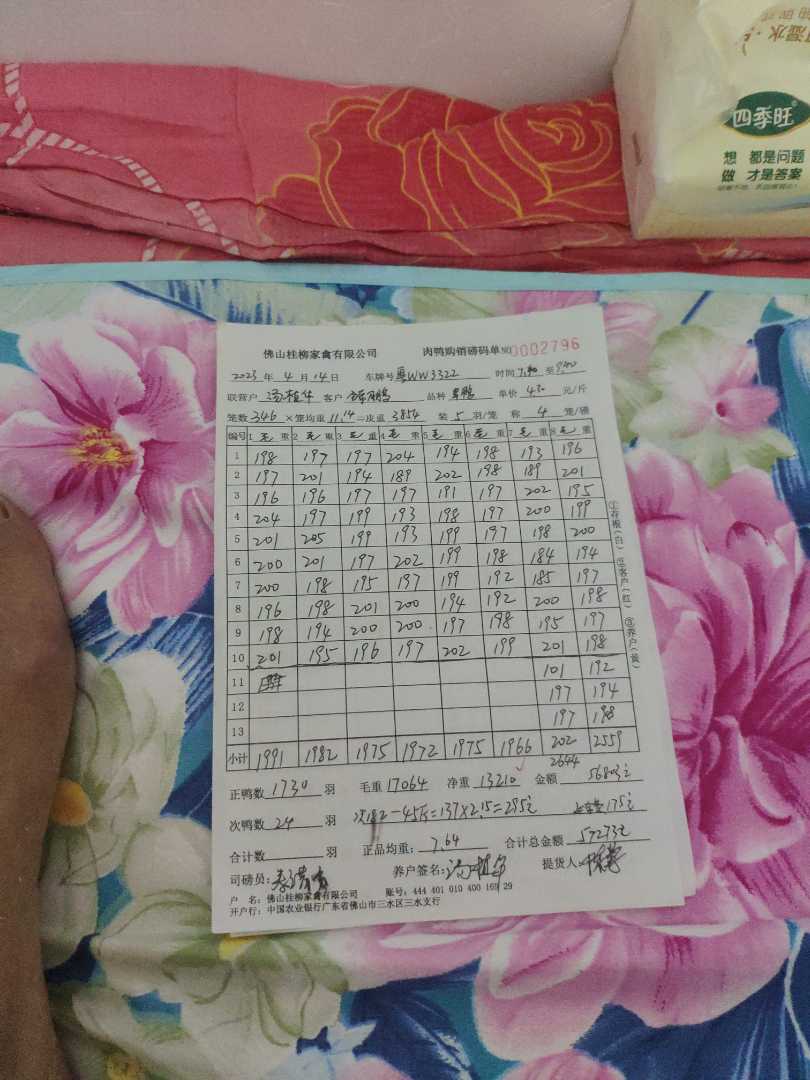 四季旺
想 都是问题
做 才是答案
佛山桂柳家禽有限公司 肉鸭购销磅码单 NO 0002796
2023 年 4 月 14 日 车牌号 粤WW3322 时间 至
联营户 汤植华 客户 品种 单价 4.30 元/斤
笼数 346 ×笼均重 11.14 =皮重 3854 装 5 羽/笼 称 4 笼/磅
编号 1 毛 重 2 毛 重 3 毛 重 4 毛 重 5 毛 重 6 毛 重 7 毛 重 8 毛 重
1 198 197 197 204 194 198 193 196
2 197 201 194 189 202 198 189 201
3 196 196 197 197 191 197 202 195
4 204 197 199 193 198 197 200 199
5 201 205 199 193 199 197 198 200
6 200 201 197 202 199 198 184 194
7 200 198 195 197 199 192 185 197
8 196 198 201 200 194 192 200 198
9 198 194 200 200 197 198 195 197
10 201 195 196 197 202 199 201 198
11 101 192
12 197 194
13 197 198
小计 1991 1982 1975 1972 1975 1966 202 2559
2644
正鸭数 1730 羽 毛重 17064 净重 13210 金额 56803元
次鸭数 24 羽 次182-45斤=137×2.15=295元 175元
合计数 羽 正品均重: 7.64 合计总金额 57273元
司磅员: 养户签名: 汤植华 提货人:
户 名: 佛山桂柳家禽有限公司 账号: 444 401 010 400 169 29
开户行: 中国农业银行广东省佛山市三水区三水支行
①存根(白) ②客户(红) ③养户(黄)